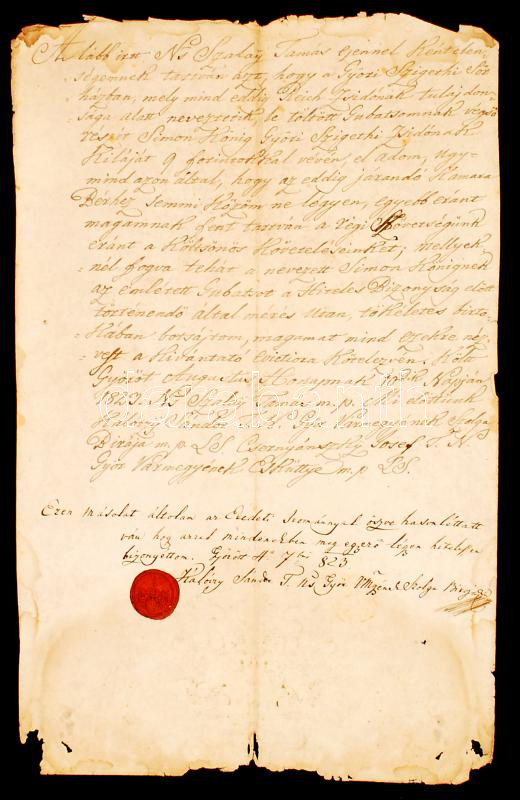 Alább irtt Ns Szalaÿ Tamás ezennel Kéntelen-
ségemnek tartván azt, hogy a Győri Szigethi Sör
házban, mely mind eddig Reich Zsidónak tulajdon-
sága alatt neveztetik le töltött Gubatsomnak végső
részit Simon König Győri Szigethi Zsidónak
Kiláját 9 forintokkal vévén, el adom, úgy-
mind azon által, hogy az eddig járandó Kamara
Bérhez semmi Közöm ne legyen, egyébb eránt
magamnak fent tartván a régi Szövetségünk
eránt a Kölcsönös Követeléseinket; mellyek-
nél fogva tehát a nevezett Simon Könignek
az emlétett Gubatsot a Hiteles Bizonyság előtt
történendő által mérés Után, tökéletes birto-
kában botsájtom, magamat mind ezekre néz-
vést a Kivántató Evictiora Kötelezvén. Költ
Győrött Augustus Honapnak 10dik Napján
1823. Ns Szalaÿ Tamás m.p. Mi előttünk
Kálóczy Sándor T. N. Győr Vármegyének Szolga
Birája m.p LS. Csornyánszky Josef T. N.
Győr Vármegyének Esküttje m.p LS.
Ezen másolat általam az Eredeti Irománnyal öszve hasonlíttatt
ván hogy azzal mindenekben meg egyező légyen hitelesen
bizonyittom. Győrött 4n 7bri 823
Kálóczy Sándor T. Ns. Győr Vmgyének Szolga Birája